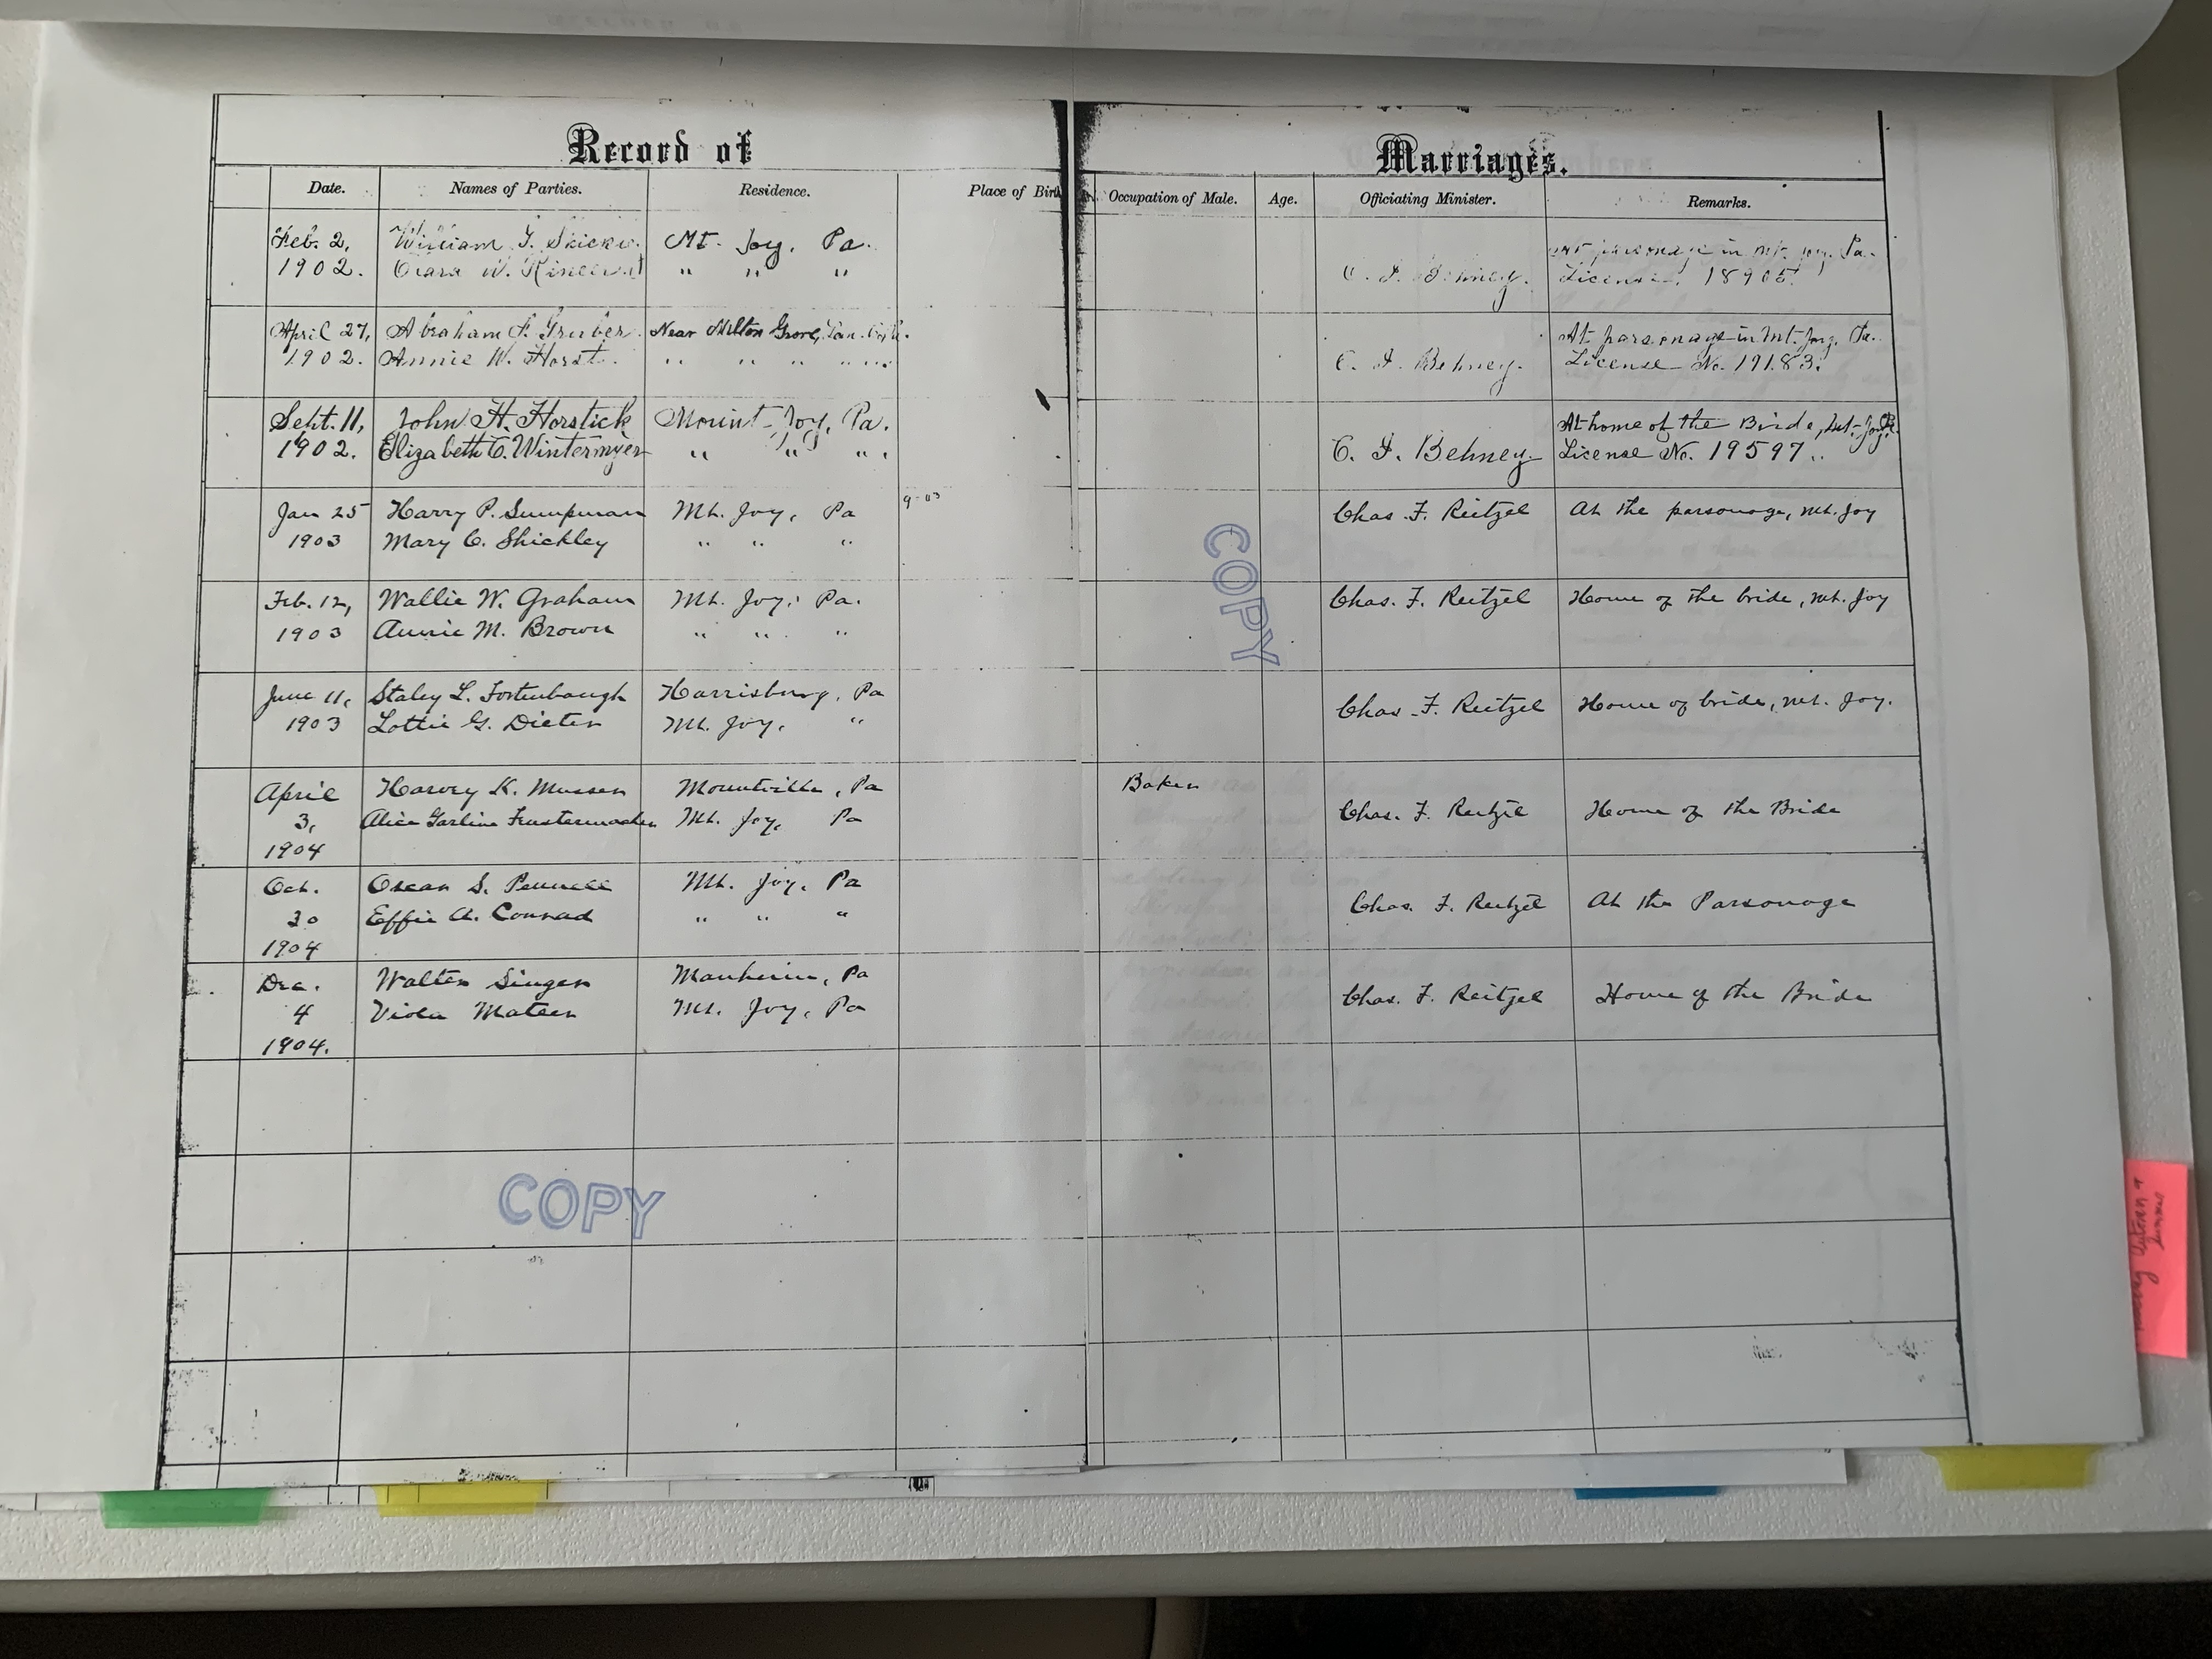 Record of Marriages.
Date. Names of Parties. Residence. Place of Birth Occupation of Male. Age. Officiating Minister. Remarks.
Feb. 2, William Mt. Joy, Pa. At parsonage in Mt. Joy, Pa.
1902. Clara W. " " " C. I. Behney. License 18905.
April 27, Abraham F. Gruber Near Milton Grove, Lan. Co. Pa. At parsonage in Mt. Joy, Pa.
1902. Annie W. Horst. " " " " " C. I. Behney. License No. 19183.
Sept. 11, John H. Horstick Mount Joy, Pa. At home of the Birde, Mt. Joy Pa.
1902. Elizabeth C. Wintermyer " " " C. I. Behney. License No. 19597.
Jan 25 Harry P. Sumpman Mt. Joy, Pa Chas. F. Reitzel At the parsonage, Mt. Joy
1903 Mary C. Shickley " " "
Feb. 12, Wallie W. Graham Mt. Joy, Pa. Chas. F. Reitzel Home of the bride, Mt. Joy
1903 Annie M. Brown " " "
June 11, Staley L. Fortenbaugh Harrisburg, Pa Chas. F. Reitzel Home of bride, Mt. Joy.
1903 Lottie G. Dieter Mt. Joy, "
April Harvey K. Musser Mountville, Pa Baker
3, Alice Fenstermacher Mt. Joy, Pa Chas. F. Reitzel Home of the Bride
1904
Oct. Oscar S. Pennell Mt. Joy, Pa
30 Effie A. Conrad " " " Chas. F. Reitzel At the Parsonage
1904
Dec. Walter Singer Manheim, Pa
4 Viola Mateer Mt. Joy, Pa Chas. F. Reitzel Home of the Bride
1904.
COPY
COPY